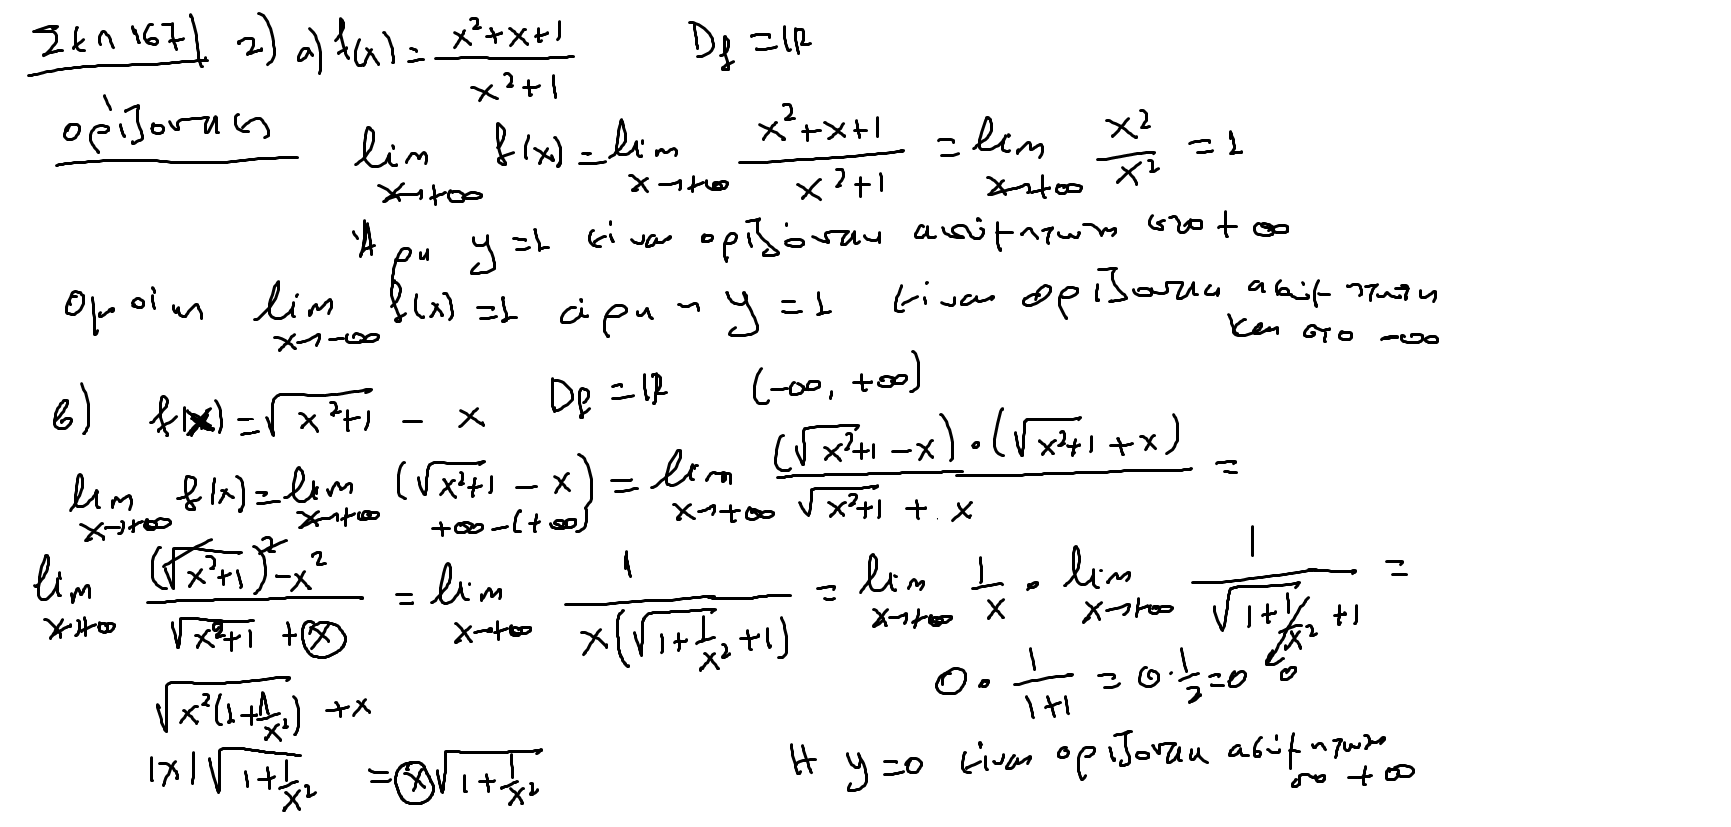 Σελ 167) 2) α) f(x) = (x²+x+1)/(x²+1) D_f = ℝ
οριζόντιες lim_{x→+∞} f(x) = lim_{x→+∞} (x²+x+1)/(x²+1) = lim_{x→+∞} x²/x² = 1
Άρα y = 1 είναι οριζόντια ασύμπτωτη στο +∞
Ομοίως lim_{x→-∞} f(x) = 1 άρα η y = 1 είναι οριζόντια ασύμπτωτη
και στο -∞
β) f(x) = √(x²+1) - x D_f = ℝ (-∞, +∞)
lim_{x→+∞} f(x) = lim_{x→+∞} (√(x²+1) - x) = lim_{x→+∞} (√(x²+1) - x)·(√(x²+1) + x)/(√(x²+1) + x) =
+∞-(+∞)
lim_{x→+∞} ((√(x²+1))² - x²)/(√(x²+1) + x) = lim_{x→+∞} 1/(x(√(1+1/x²) + 1)) = lim_{x→+∞} 1/x · lim_{x→+∞} 1/(√(1+1/x²) + 1) =
0
0 · 1/(1+1) = 0 · 1/2 = 0
√(x²(1+1/x²)) + x
|x|√(1+1/x²) = x√(1+1/x²)
Η y = 0 είναι οριζόντια ασύμπτωτη
στο +∞